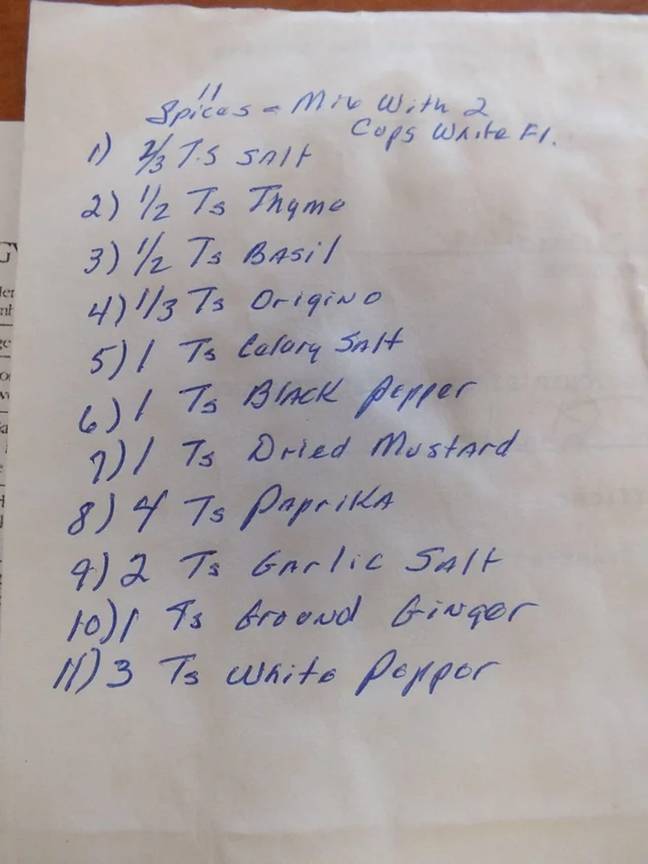 11
Spices - Mix With 2
Cups White Fl.
1) 2/3 Ts SAlt
2) 1/2 Ts Thyme
3) 1/2 Ts BAsil
4) 1/3 Ts Origino
5) 1 Ts Celary SAlt
6) 1 Ts BlAck Pepper
7) 1 Ts Dried MustArd
8) 4 Ts PAprikA
9) 2 Ts GArlic SAlt
10) 1 Ts Ground Ginger
11) 3 Ts White Pepper